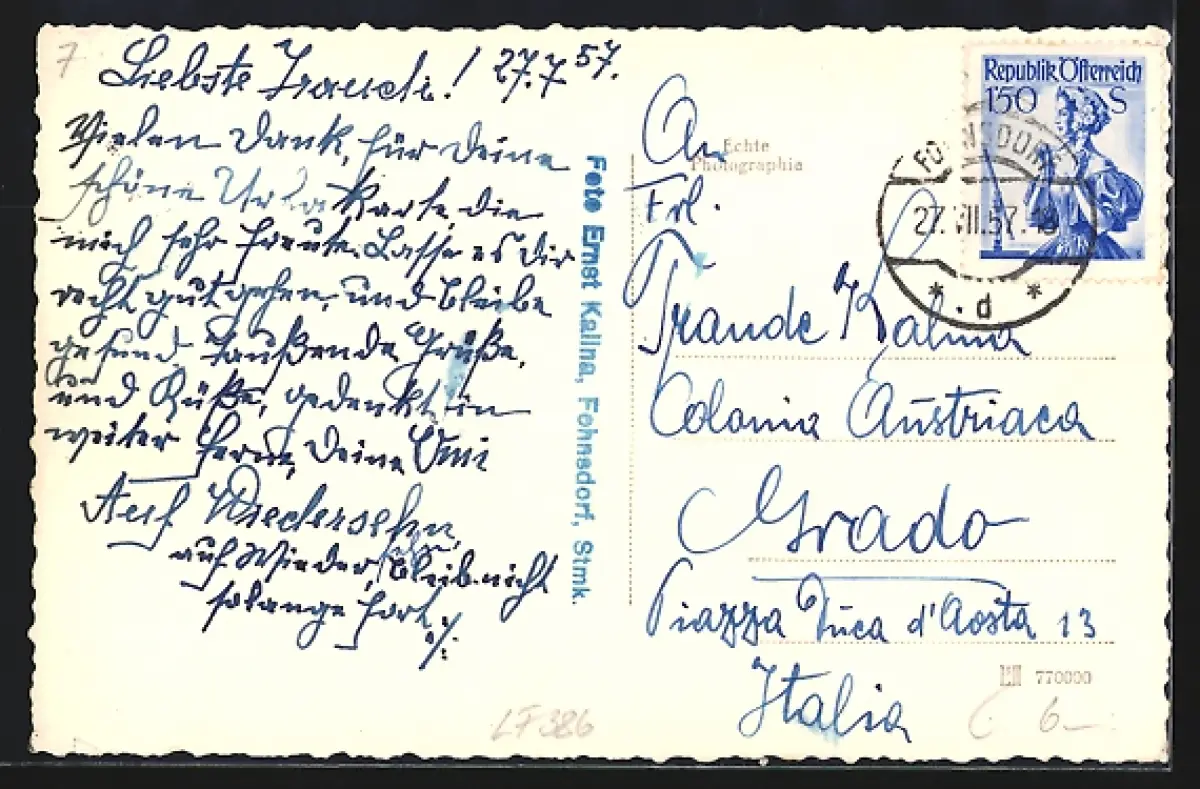 7
Liebste Traudi! 27.7 57.
Vielen Dank, für Deine
schöne Karte, die
mich sehr freute. Lasse es Dir
recht gut gehen, und bleibe
gesund. Taußende Grüße,
und Küße, gedenkt in
weiter Ferne, Deine Omi
Auf Wiedersehn,
auf Wieder, bleib nicht
solange fort
Foto Ernst Kalina, Fohnsdorf, Stmk.
Echte
Photographie
Republik Österreich
150 S
FOHNSDORF
27.VII.57.-18
* d *
An
Frl.
Traude Kalina
Colonia Austriaca
Grado
Piazza Duca d'Aosta 13
Italia
770000
LF386
6-